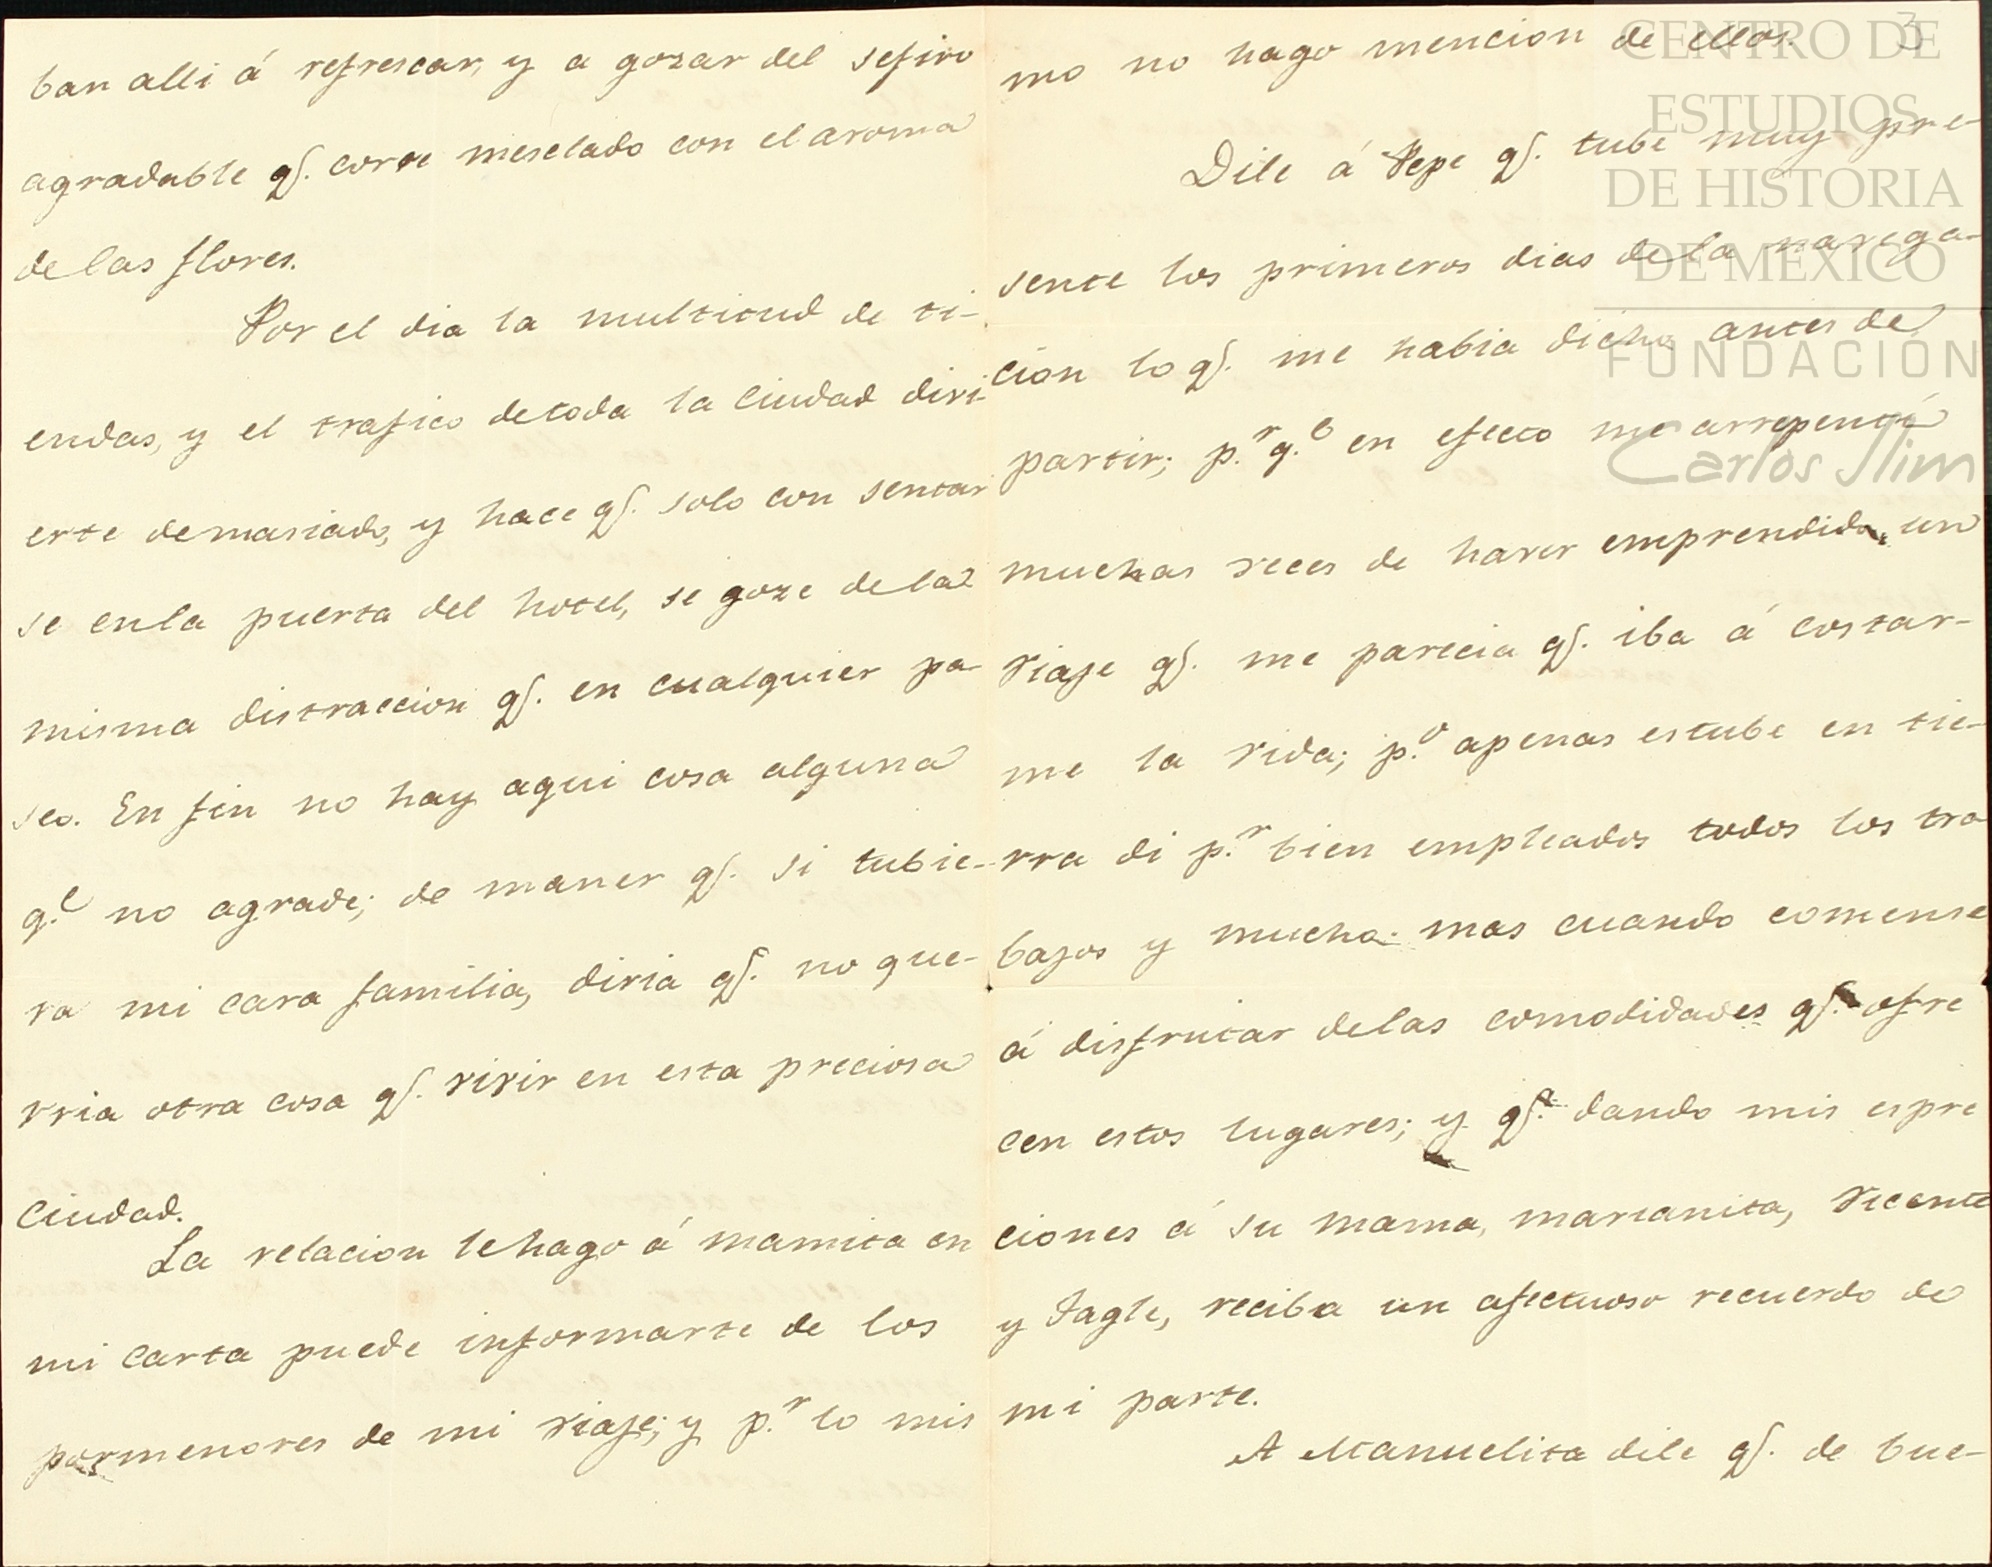 ban alli á refrescar, y a gozar del sefiro
agradable q.e corre mesclado con el aroma
de las flores.
Por el dia la multitud de ti-
endas, y el trafico de toda la Ciudad divi-
erte demasiado, y hace q.e solo con sentar
se en la puerta del hotel, se goze de la
misma distraccion q.e en cualquier pa-
seo. En fin no hay aqui cosa alguna
q.e no agrade; de maner q.e si tubie-
ra mi cara familia, diria q.e no que-
rria otra cosa q.e vivir en esta preciosa
Ciudad.
La relacion le hago á mamita en
mi carta puede informarte de los
pormenores de mi viaje; y p.r lo mis
3
mo no hago mencion de ellos.
Dile á Pepe q.e tube muy pre-
sente los primeros dias de la navega-
cion lo q.e me habia dicho antes de
partir; p.r q.e en efecto me arrepentí
muchas veces de haver emprendido un
viaje q.e me parecia q.e iba á costar-
me la vida; p.o apenas estube en tie-
rra di p.r bien empleados todos los tra
bajos y mucho mas cuando comense
á disfrutar de las comodidades q.e ofre
cen estos lugares; y q.e dando mis espre
ciones á su mama, marianita, Vicente
y Tagle, reciba un afectuoso recuerdo de
mi parte.
A Manuelita dile q.e de bue-
CENTRO DE
ESTUDIOS
DE HISTORIA
DE MEXICO
FUNDACIÓN
Carlos Slim